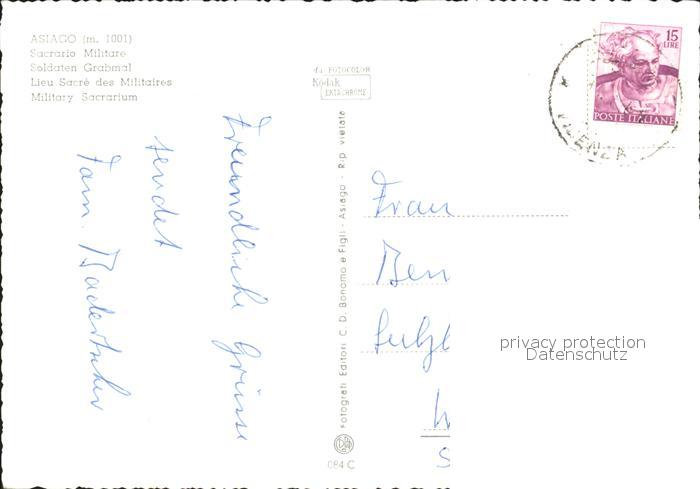 ASIAGO (m. 1001)
Sacrario Militare
Soldaten Grabmal
Lieu Sacré des Militaires
Military Sacrarium
da FOTOCOLOR
Kodak
EKTACHROME
15
LIRE
POSTE ITALIANE
VICENZA
Freundliche Grüsse
sendet
Fam. Badertscher
Fotografi Editori C. D. Bonomo e Figli - Asiago - Rip. vietata
084 C
Frau
privacy protection
Datenschutz